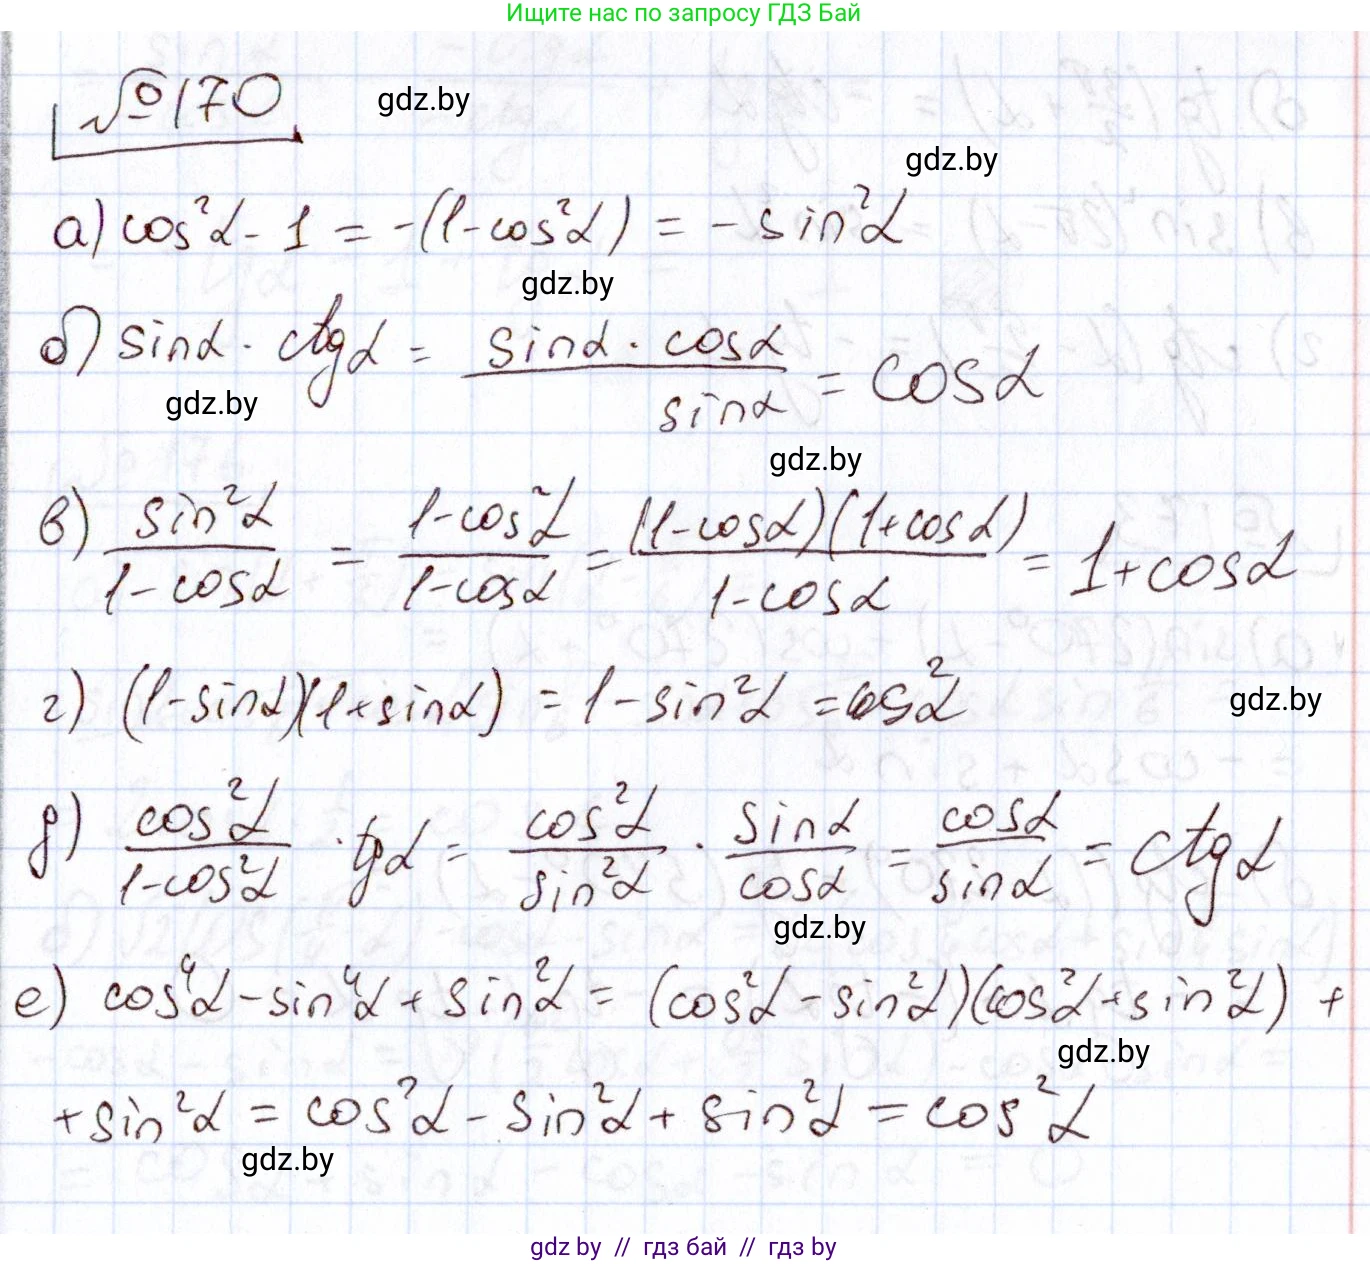 Ищите нас по запросу ГДЗ Бай
№170
gdz.by
gdz.by
а) cos²α - 1 = -(1-cos²α) = -sin²α
gdz.by
б) sinα · ctgα = (sinα · cosα)/sinα = cosα
gdz.by
gdz.by
в) sin²α/(1-cosα) = (1-cos²α)/(1-cosα) = (1-cosα)(1+cosα)/(1-cosα) = 1+cosα
г) (1-sinα)(1+sinα) = 1-sin²α = cos²α
gdz.by
д) cos²α/(1-cos²α) · tgα = cos²α/sin²α · sinα/cosα = cosα/sinα = ctgα
gdz.by
е) cos⁴α - sin⁴α + sin²α = (cos²α - sin²α)(cos²α + sin²α) +
gdz.by
+ sin²α = cos²α - sin²α + sin²α = cos²α
gdz.by
gdz by // гдз бай // гдз by